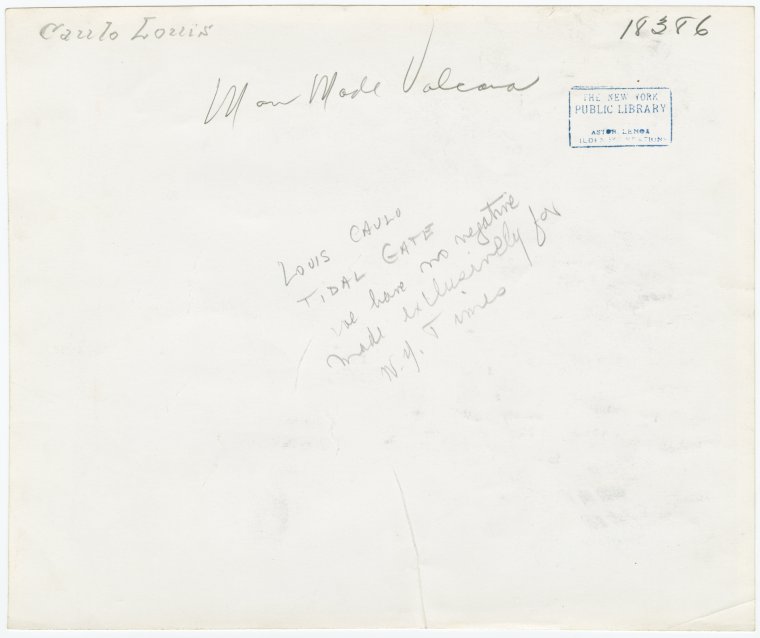 Caulo Louis
18386
Man Made Volcano
THE NEW YORK
PUBLIC LIBRARY
ASTOR, LENOX
TILDEN FOUNDATIONS
LOUIS CAULO
TIDAL GATE
we have no negative
made exclusively for
N.Y. Times